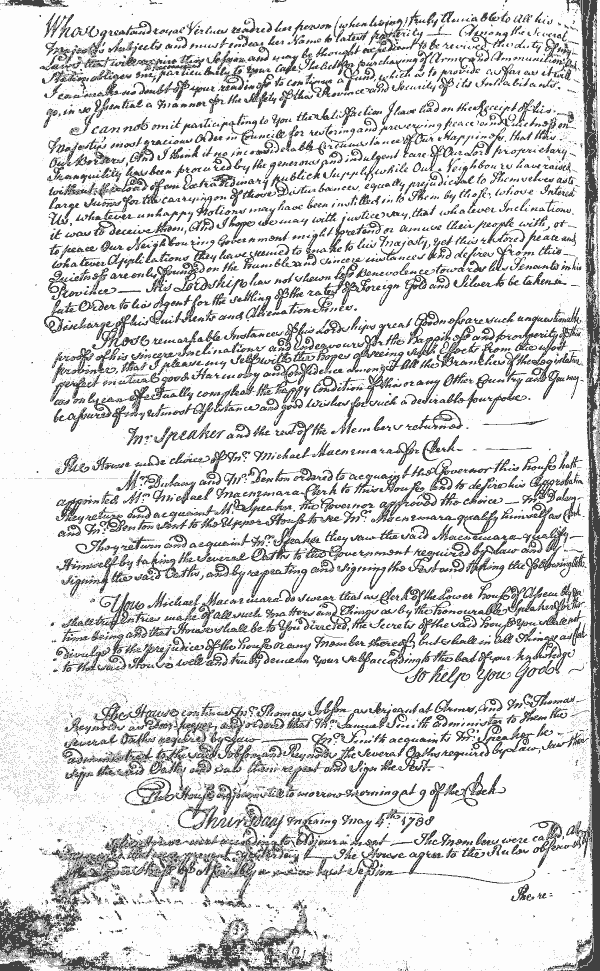 Whose great and royal Virtues rendred her person (when living) truly Amiable to All his
Majesty's Subjects and must endear her Name to latest posterity — Among the Several
Laws that will require this Session and may be thought expedient to be revived the duty of my
Station obliges me, particularly to your care I that the purchasing of Arms and Ammunition, And
I can make no doubt of your readiness to continue a fund, which is to provide as far as it will
go, in so Essential a manner for the Safety of this Province and Security of its Inhabitants.
I cannot omit participating to You the Satisfaction I have had on the Receipt of his
Majesty's most gracious Order in Councill for restoring and preserving peace and Quietness on
Our Borders, And I think it no inconsiderable Circumstance of Our Happiness, that this
Tranquility has been procured by the generous and indulgent care of Our Lord proprietary
without the load of an Extraordinary publick Supply, while Our Neighbours have raised
large Sums for the carrying on of those disturbances, equally prejudicial to Themselves as to
Us, whatever unhappy Notions may have been instilled into Them by those, whose Interest
it was to deceive them, And I hope we may with justice say, that whatever Inclinations
to peace Our Neighbouring Government might pretend or amuse their people with, or
whatever Applications they have seemed to make to his Majesty, yet this restored peace and
Quietness are only founded on the humble and sincere instances and desires from this
Province — His Lordship has not shewn less Benevolence towards his Tenants in his
late Order to his Agent for the setling of the rates of Foreign Gold and Silver to be taken in
Discharge of his Quit Rents and Alienation Fines.
Those remarkable Instances of his Lordships great Goodness are such unquestionable
proofs of his sincere Inclinations and Endeavours for the Happiness and prosperity of this
province, that I please my self with the hopes of seeing such Effects from them, as
perfect mutual good Harmony and Confidence amongst All the Branches of the Legislature
as only can effectually compleat the happy Condition of this or any Other Country and You may
be assured of my utmost Assistance and good Wishes for such a desireable purpose.
Mr. Speaker and the rest of the Members returned.
The House made choice of Mr. Michael Macnemara for Clerk.
Mr. Dulany and Mr. Denton ordered to acquaint the Governor this house hath
appointed Mr. Michael Macnemara Clerk to this House and to desire his Approbation
They return and acquaint Mr. Speaker, the Governor approved the choice — Mr. Dulany
and Mr. Denton sent to the Upper House to see Mr. Macnemara qualify himself as Clerk.
They return and acquaint Mr. Speaker they saw the said Macnemara qualify
Himself by taking the Several Oaths to the Government required by Law and by
signing the said Oaths, and by repeating and signing the Test and taking the following Oath
You Michael Macnemara do swear that as Clerk of the Lower house of Assembly you
shall true Entries make of all such matters and Things as by the honourable Speaker for the
time being and that House shall be to You directed, the Secrets of the said house You shall not
Divulge to the prejudice of the house or any Member thereof, but shall in all Things as Clerk
to the said House well and truly demean Your self according to the best of your knowledge
So help You God
The House continue Mr. Thomas Jobson as Serjeant at Arms, and Mr. Thomas
Reynolds as Door-keeper, and ordered that Mr. Samuel Smith administer to them the
several Oaths required by Law — Mr. Smith acquaints Mr. Speaker he
administred to the said Jobson and Reynolds the Several Oaths required by Law, saw them
sign the said Oaths and saw them repeat and Sign the Test.
The House adjourns till to morrow morning at 9 of the Clock
Thursday morning May 4th. 1738
The House met according to Adjournment — The Members were called, All
yesterday — The House agree to the Rules observed
of Assembly last Session
The re-